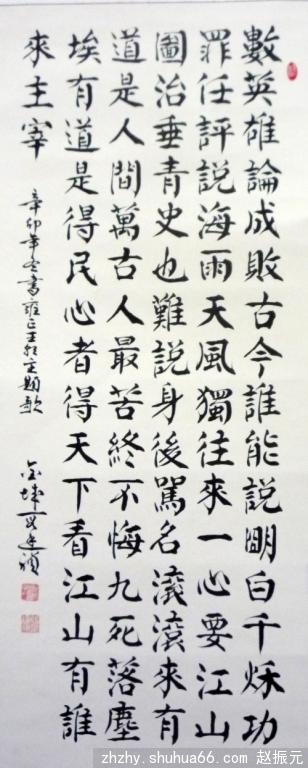 數英雄論成敗古今誰能說明白千秌功
罪任評説海雨天風獨往來一心要江山
圖治垂青史也難説身後罵名滾滾來有
道是人間萬古人最苦終不悔九死落塵
埃有道是得民心者得天下看江山有誰
來主宰
辛卯年冬書雍正王朝主題歌
zhzhy.shuhua66.com 赵振元